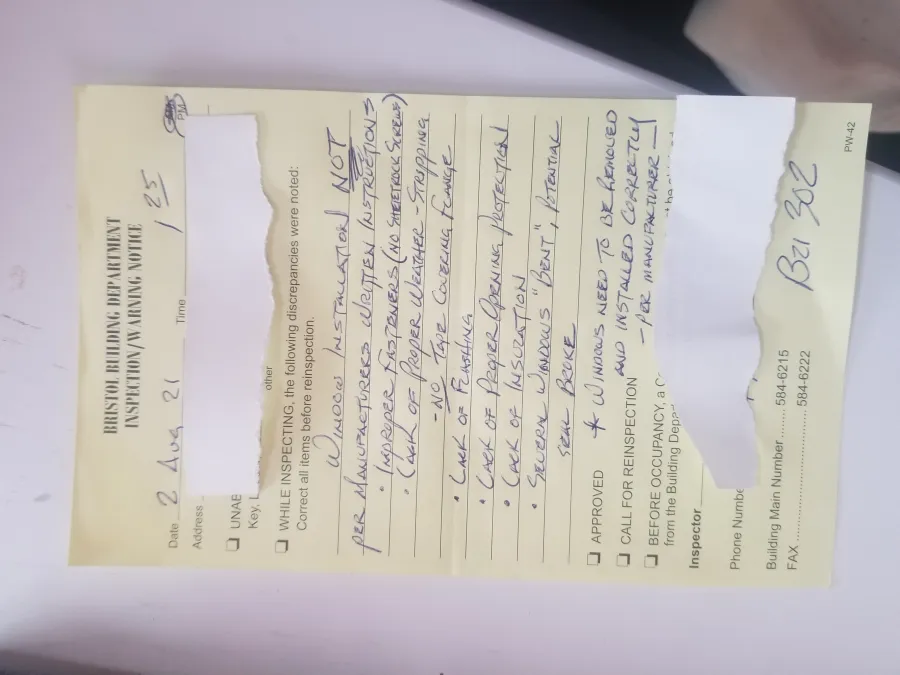 BRISTOL BUILDING DEPARTMENT
INSPECTION/WARNING NOTICE
Date 2 Aug 21 Time 1 25 PM
Address
❏ UNAB
Key, L
other
❏ WHILE INSPECTING, the following discrepancies were noted:
Correct all items before reinspection.
WINDOW INSTALLATION NOT
PER MANUFACTURERS WRITTEN INSTRUCTIONS
• IMPROPER FASTENERS (NO SHEETROCK SCREWS)
• LACK OF PROPER WEATHER-STRIPPING
- NO TAPE COVERING FLANGE
• LACK OF FLASHING
• LACK OF PROPER OPENING PROTECTION
• LACK OF INSULATION
• SEVERAL WINDOWS "BENT", POTENTIAL
SEAL BROKE
❏ APPROVED * WINDOWS NEED TO BE REMOVED
❏ CALL FOR REINSPECTION AND INSTALLED CORRECTLY
- PER MANUFACTURER -
❏ BEFORE OCCUPANCY, a C
from the Building Depar
Inspector
Phone Numbe
Building Main Number ........ 584-6215
FAX ........ 584-6222
PW-42